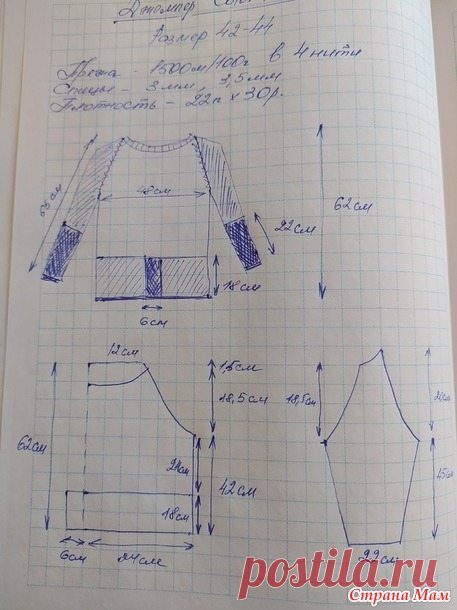 Джемпер
Размер 42-44
Пряжа - 1500м/100г в 4 нити
Спицы - 3мм, 3,5мм.
Плотность - 22п х 30р.
65см
48см
62см
22см
18см
6см
12см
1,5см
18,5см
18,5см
62см
24см
42см
45см
18см
6см
24см
22см
postila.ru
Страна Мам